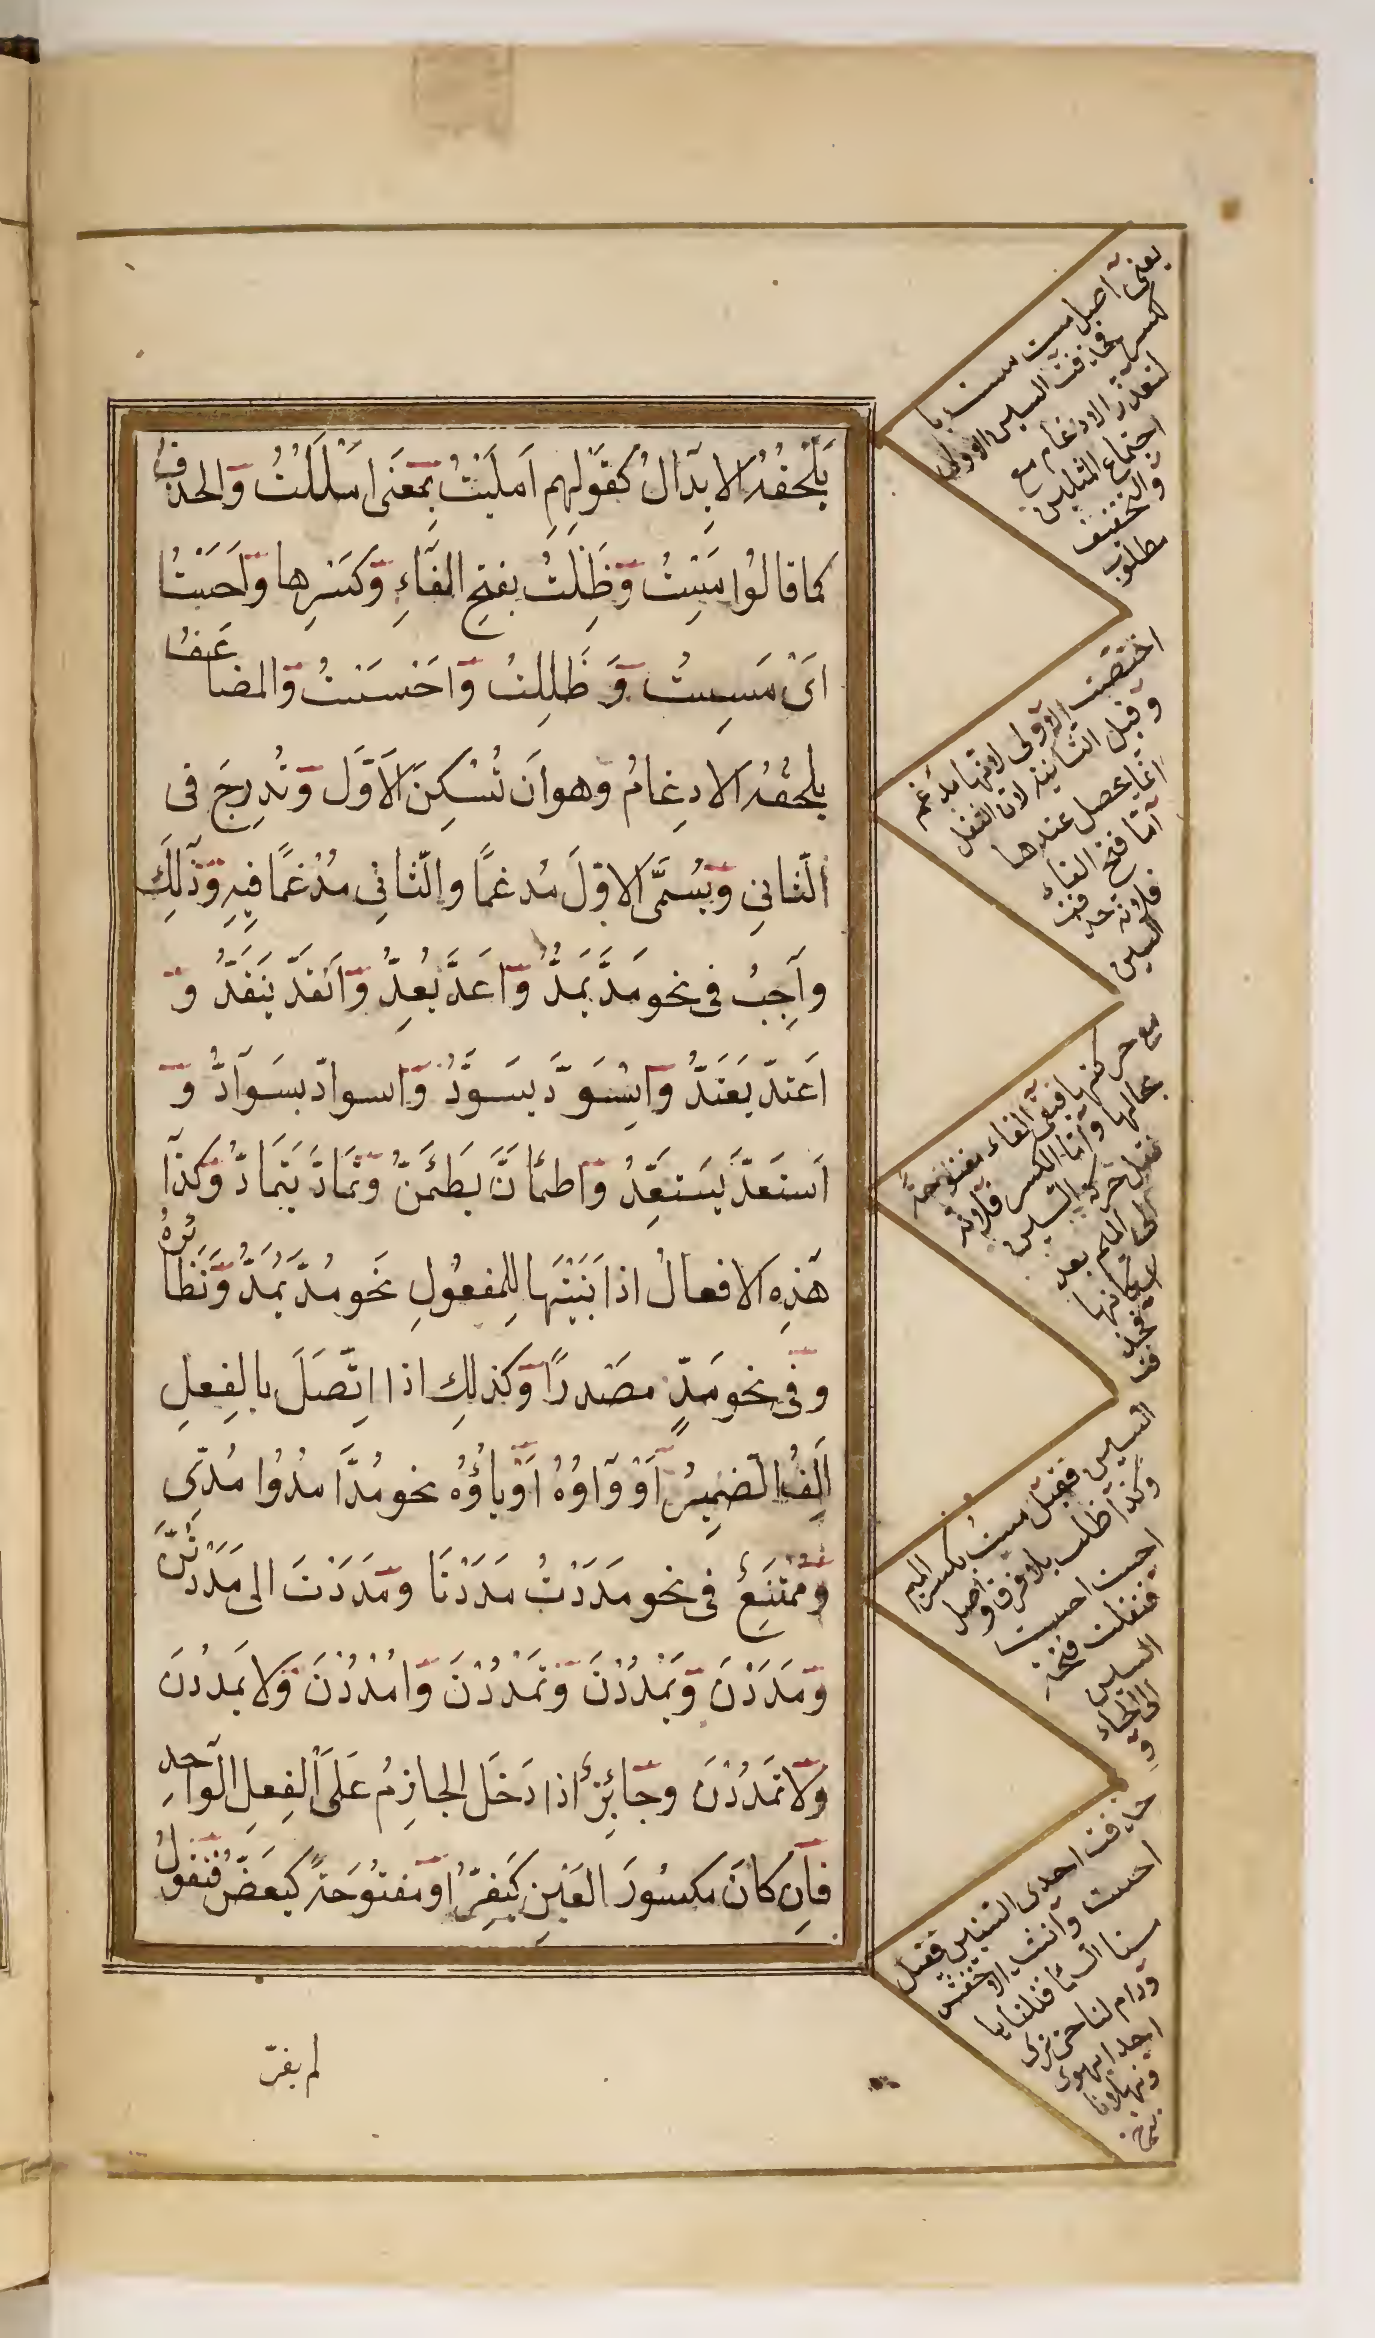 يَلْحَقُهُ الابِدَالُ كَقَوْلِهِمِ اَمْلَيْتُ بِمَعْنَى اَمْلَلْتُ وَالحذفُ
كما قالُوا مَسْتُ وَظِلْتُ بفتحِ الفَاءِ وَكَسْرِها وَاَحَسْتُ
اَىْ مَسِسْتُ وَ ظَلِلْتُ وَاَحْسَسْتُ وَالمضاعَفُ
يلحقُهُ الادِغامُ وهو اَن تُسْكِنَ الاَوَّل وَتُدرِجَ فى
الثانِي وَيُسَمَّى الاوّلَ مُدغمًا والثانِي مُدْغمًا فِيهِ وَذَلِكَ
واجِبُ فى نحو مَدَّ يَمُدُّ وَاَعَدَّ يُعِدُّ وَاَنقدَّ يَنقَدُّ وَ
اَعتدّ يَعتَدُّ وَاسْوَدَّ يسوَدُّ وَاسوادّ يسوَادُّ وَ
اَستعَدَّ يَستعِدُّ وَاطمأنَّ يطمَئنُّ وَتمَادَّ يَتمَادُّ وَكذا
هَذِهِ الافعالُ اذا بَنَيْتَها لِلمفعُولِ نَحو مُدَّ يُمَدُّ وَنَظائرُهُ
وَفى نحو مَدٍّ مصْدرًا وَكذلِك اذا اِتّصَلَ بالفِعلِ
اَلِفُ الضميرُ اَوْ وَاوُهُ اَوْ ياؤُهُ نحو مُدَّا مدُّوا مُدّى
وَممْتنِعٌ فى نحو مدَدْتُ مَدَدْنَا وَمَدَدْتَ الى مَدَدْتُنَّ
وَمَدَدْنَ وَيَمْدُدْنَ وَتَمْدُدْنَ وَامْدُدْنَ وَلا يَمدُدْنَ
وَلا تمدُدْنَ وجَائِزٌ اذا دَخَلَ الجازِمُ عَلَى الفِعلِ الوَاحدِ
فاِن كانَ مكسُورَ العَيْنِ كيَفِرُّ اَو مفتُوحَةً كيعَضُّ فتقولُ
لم يفرّ
يعنى اصل مست مسست با
لكسر فحذفت السين الاولى
لتعذر الادغام مع
اجتماع المثلين
والتخفيف
مطلوب
اختصت الاولى لانها تدغم
وقيل الثانية لان الثقل
انما يحصل عندها
اما فتح الفاء
فلانه حذفت
السين
مع حركتها فبقى الفاء مفتوحة
بحالها واما الكسر فلانه
نقل حركة السين
الى الميم بعد
اسكانها
فحذفت
السين فقيل مست بكسر الميم
وكذا ظلت بلا فرق واصل
احست احسست
فنقلت فتحة
السين
الى الحاء
و
حذفت احدى السينين فقيل
احست وانشد الاخفش
مسنا السماء فنلناها
ودام لنا حتى نرى
احدا يهوى
وثهلانا